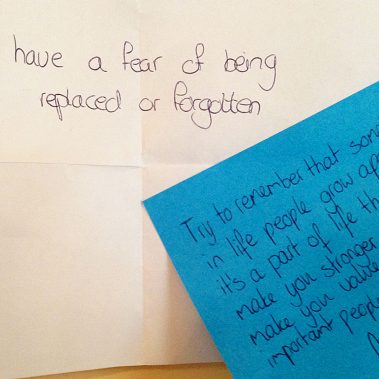 have a fear of being
replaced or forgotten
Try to remember that
in life people grow
it's a part of life
make you stronger
make you value
important people